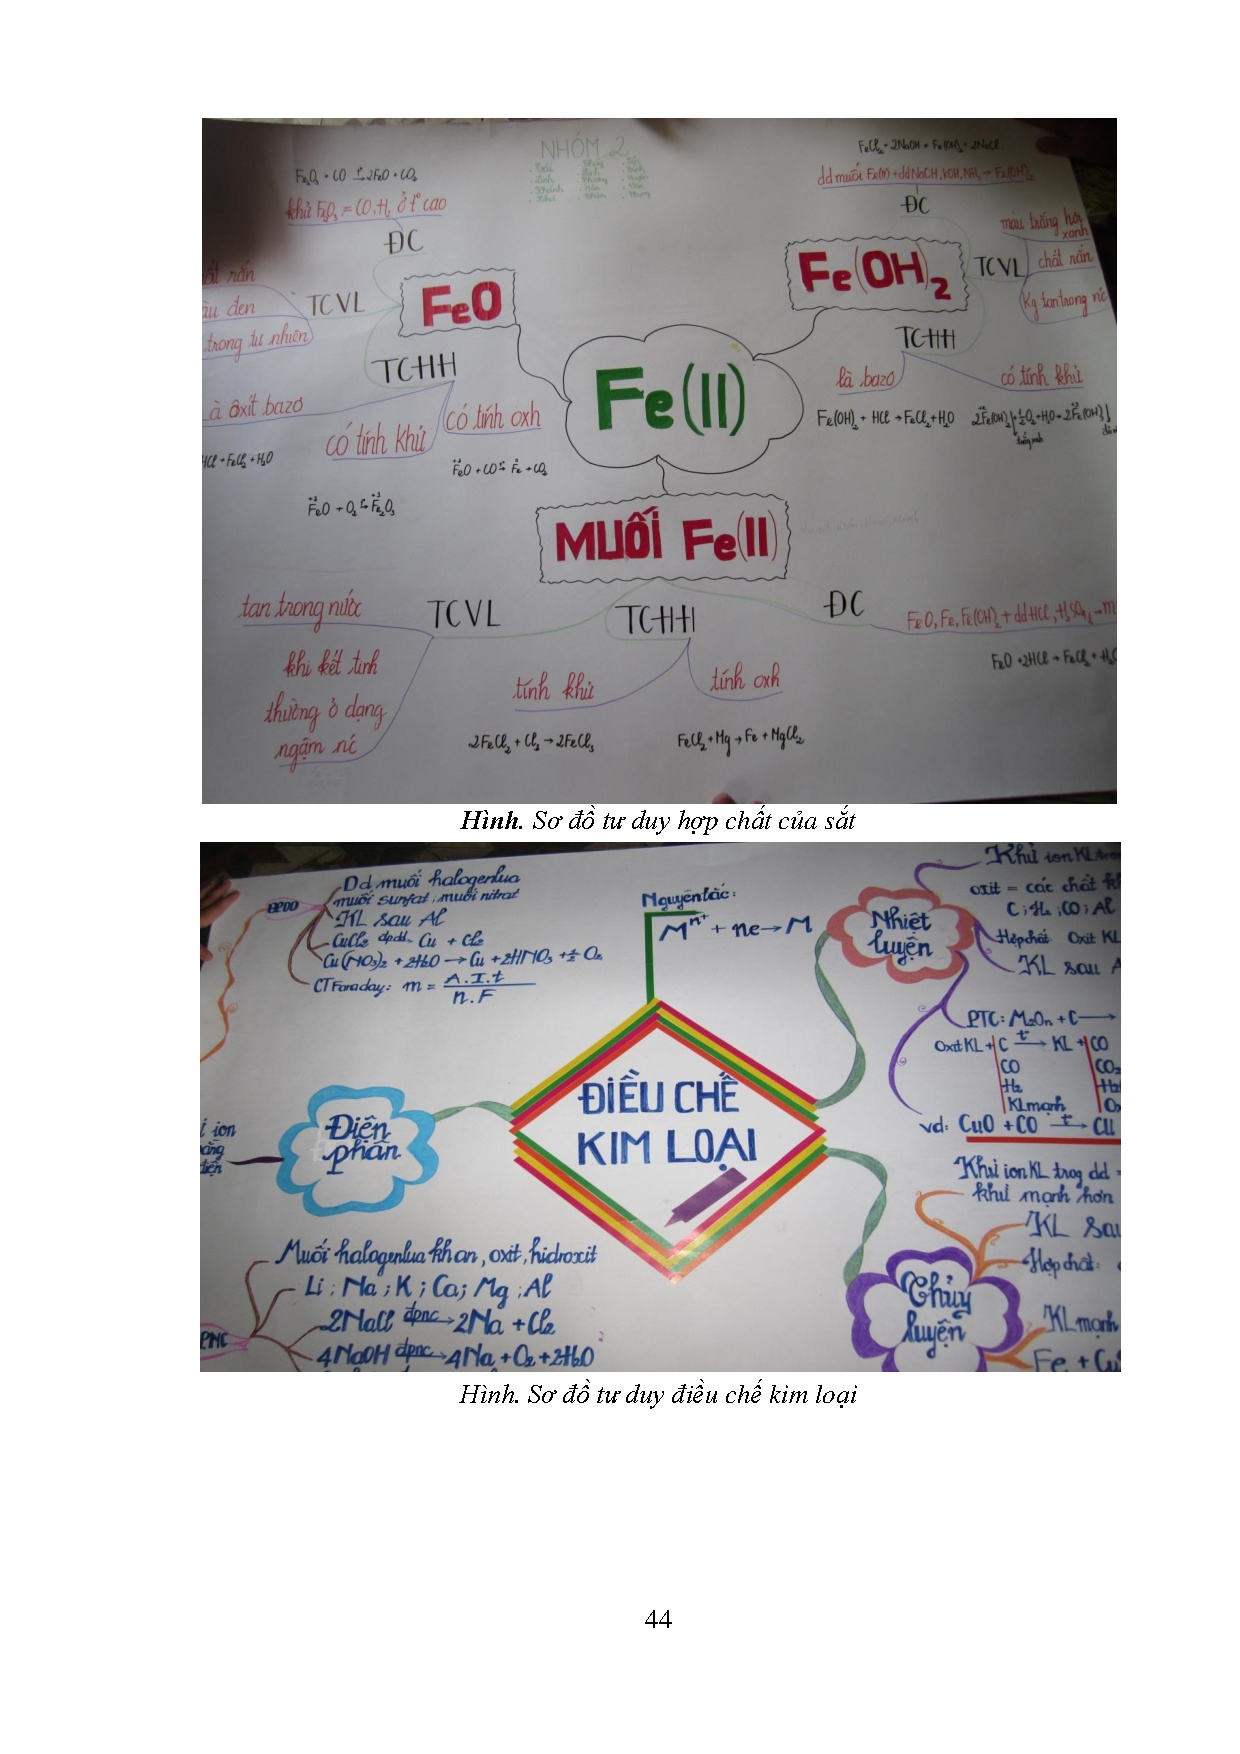 NHÓM 2
Fe₂O₃ + CO →t° 2FeO + CO₂
khử Fe₂O₃ = CO, H₂ ở t° cao
ĐC
FeO
TCVL
rắn
đen
trong tự nhiên
TCHH
là ôxít bazơ
HCl → FeCl₂ + H₂O
có tính khử
FeO + O₂ →t° Fe₂O₃
có tính oxh
FeO + CO →t° Fe + CO₂
Fe(II)
FeCl₂ + 2NaOH → Fe(OH)₂ + 2NaCl
dd muối Fe(II) + dd NaOH, KOH, NH₃ → Fe(OH)₂
ĐC
Fe(OH)₂
TCVL
màu trắng hơi xanh
chất rắn
Kg tan trong nc
TCHH
là bazơ
Fe(OH)₂ + HCl → FeCl₂ + H₂O
có tính khử
2Fe(OH)₂ + ½O₂ + H₂O → 2Fe(OH)₃
trắng xanh
MUỐI Fe(II)
TCVL
tan trong nước
khi kết tinh
thường ở dạng
ngậm nc
TCHH
tính khử
2FeCl₂ + Cl₂ → 2FeCl₃
tính oxh
FeCl₂ + Mg → Fe + MgCl₂
ĐC
FeO, Fe, Fe(OH)₂ + dd HCl, H₂SO₄ → m
FeO + 2HCl → FeCl₂ + H₂O
Hình. Sơ đồ tư duy hợp chất của sắt
ĐPDD
Dd muối halogenlua
muối sunfat, muối nitrat
KL sau Al
CuCl₂ đpdd→ Cu + Cl₂
Cu(NO₃)₂ + 2H₂O → Cu + 2HNO₃ + ½ O₂
CT Faraday: m = A.I.t / n.F
Nguyên tắc:
Mⁿ⁺ + ne → M
ĐIỀU CHẾ
KIM LOẠI
Điện
phân
ion
bằng
điện
PNC
Muối halogenlua khan, oxit, hidroxit
Li; Na; K; Ca; Mg; Al
2NaCl đpnc→ 2Na + Cl₂
4NaOH đpnc→ 4Na + O₂ + 2H₂O
Nhiệt
luyện
Khử ion KL tron
oxit = các chất kh
C; H₂; CO; Al
Hợp chất Oxit KL
KL sau A
PTC: M₂On + C →
Oxit KL + C t°→ KL + CO
CO CO₂
H₂ H₂
KL mạnh Ox
vd: CuO + CO t°→ Cu
Thủy
luyện
Khử ion KL trog dd =
khử mạnh hơn
KL sau
Hợp chất:
KL mạnh
Fe + Cu
Hình. Sơ đồ tư duy điều chế kim loại
44